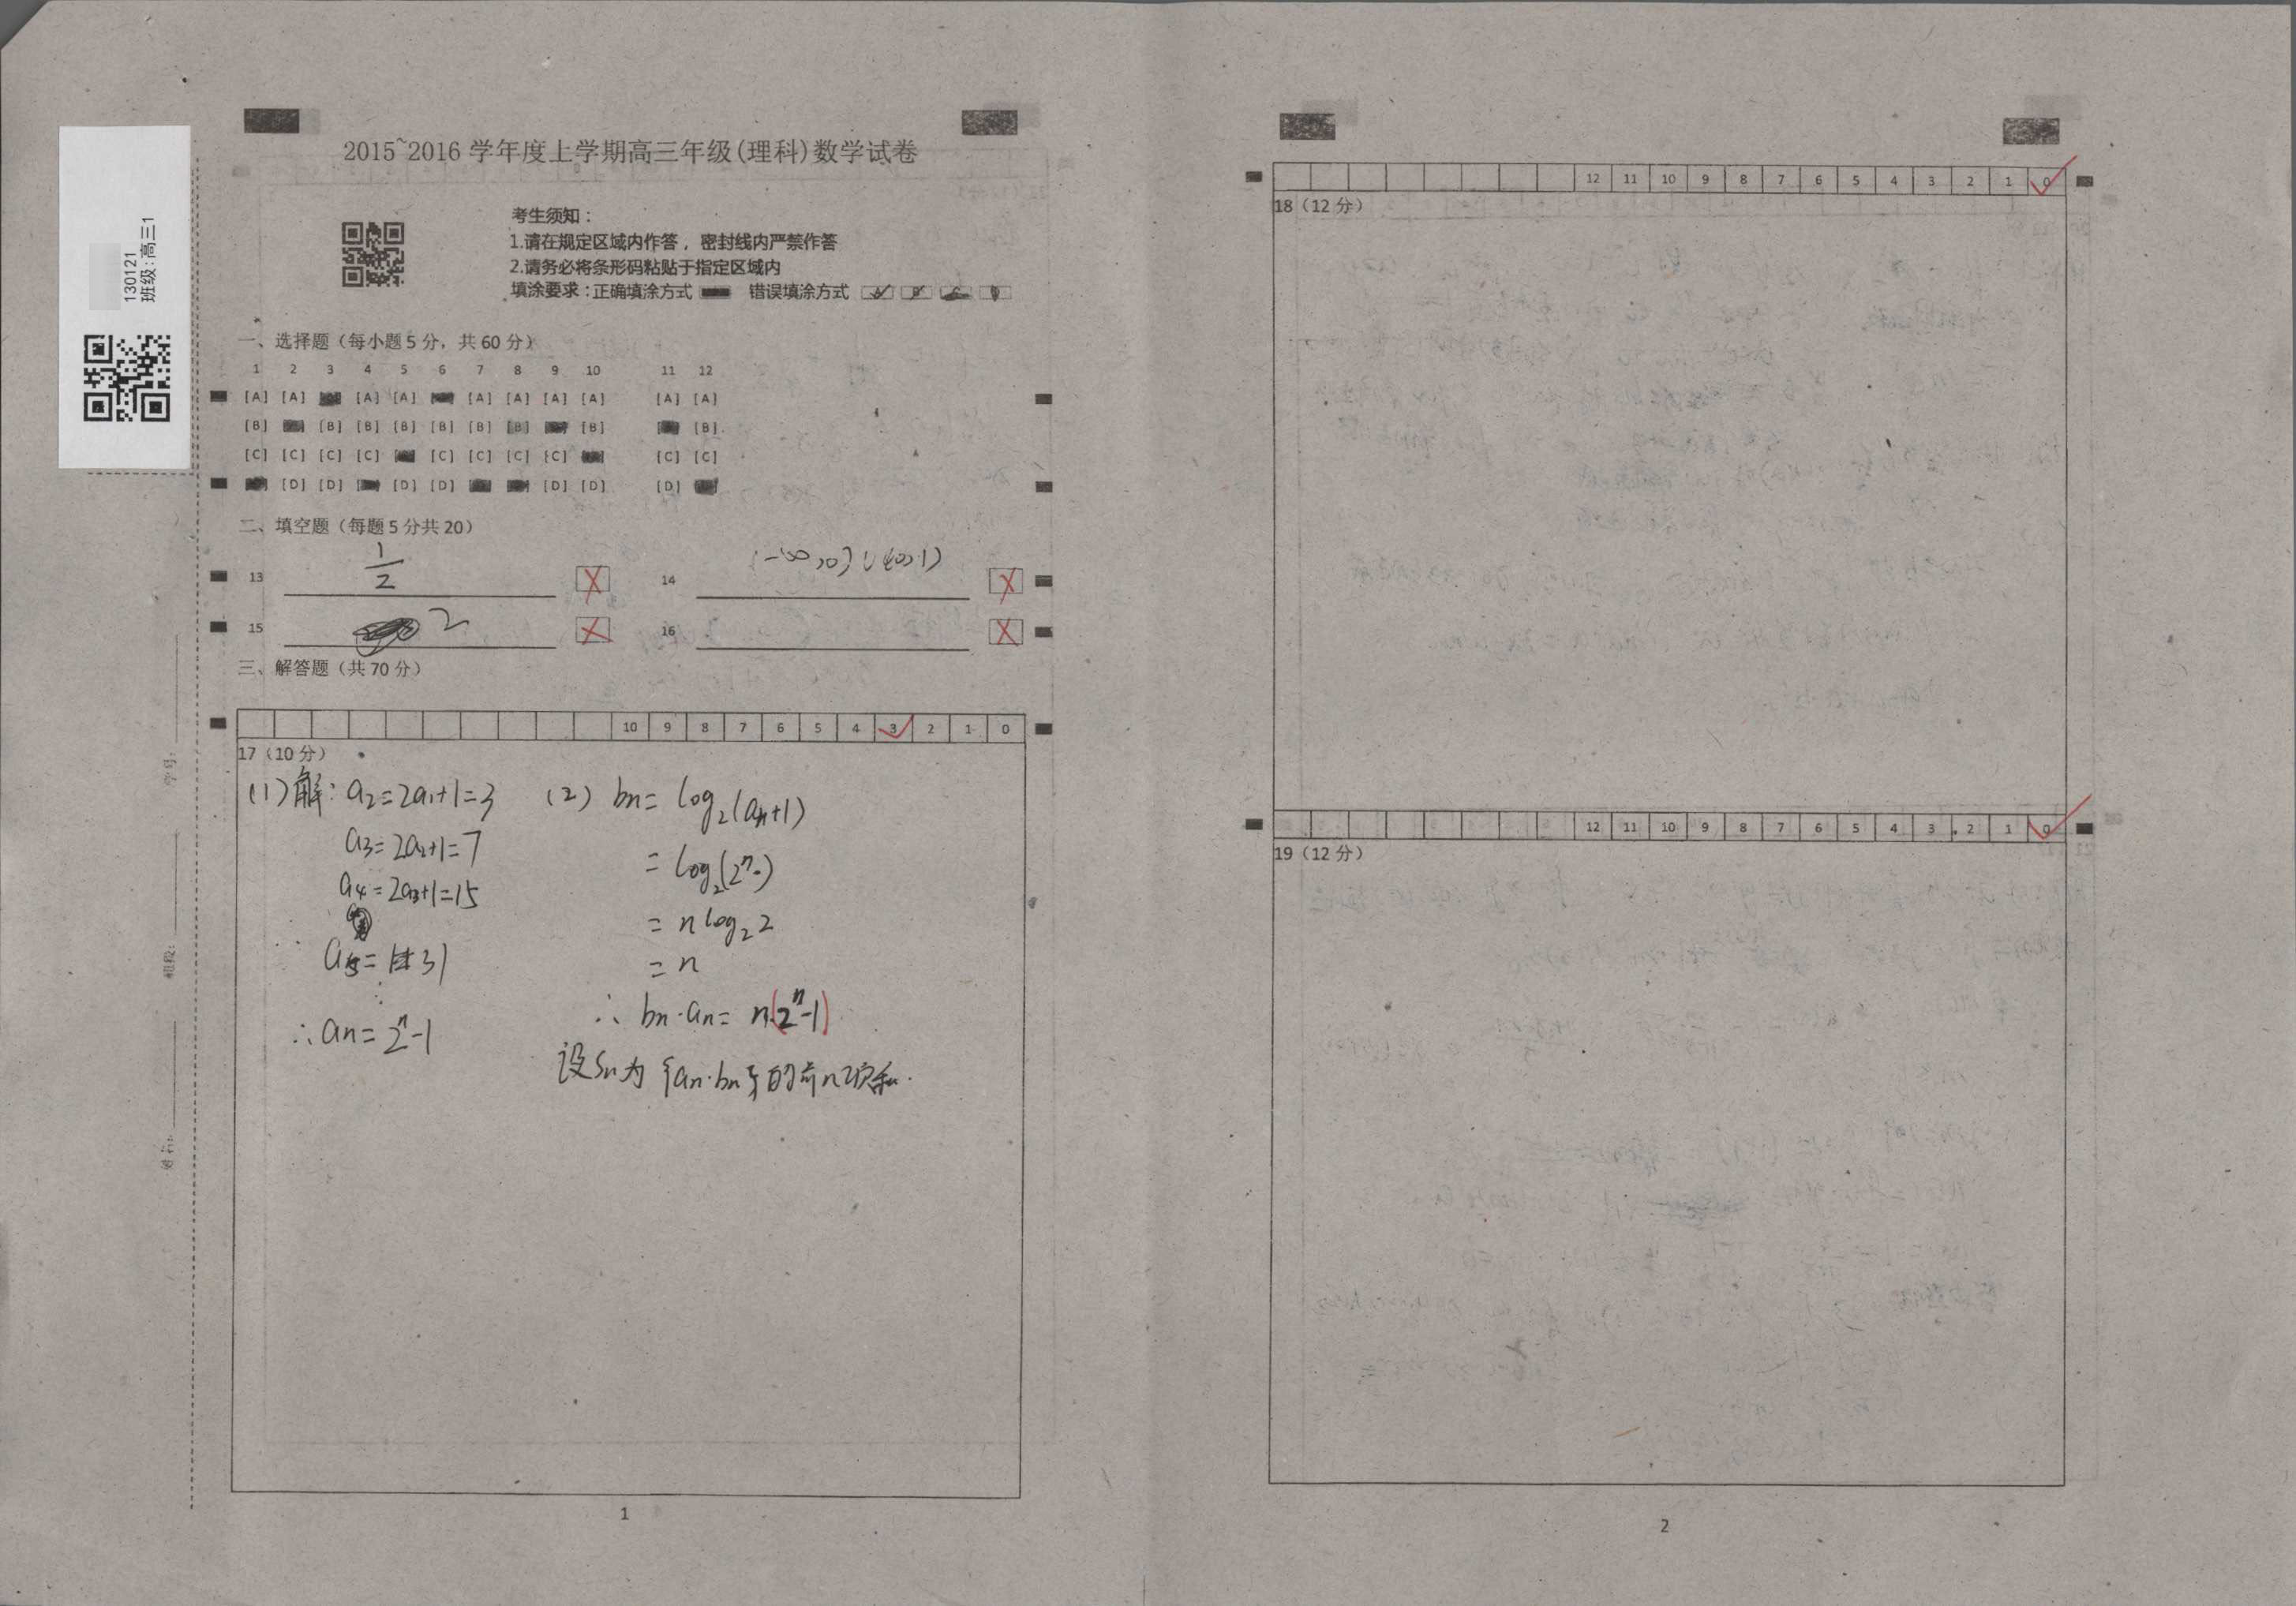 2015~2016 学年度上学期高三年级(理科)数学试卷
130121
班级:高三1
考生须知：
1.请在规定区域内作答，密封线内严禁作答
2.请务必将条形码粘贴于指定区域内
填涂要求：正确填涂方式 错误填涂方式
一、选择题（每小题 5 分，共 60 分）
1 2 3 4 5 6 7 8 9 10 11 12
[A] [A] [A] [A] [A] [A] [A] [A] [A] [A]
[B] [B] [B] [B] [B] [B] [B] [B] [B]
[C] [C] [C] [C] [C] [C] [C] [C] [C] [C]
[D] [D] [D] [D] [D] [D] [D]
二、填空题（每题 5 分共 20）
13 1/2 14
15 2 16
三、解答题（共 70 分）
10 9 8 7 6 5 4 3 2 1 0
17（10 分）
(1)解: a₂=2a₁+1=3
a₃=2a₂+1=7
a₄=2a₃+1=15
a₅= 31
∴an=2ⁿ-1
(2) bn= log₂(an+1)
= log₂(2ⁿ)
= n log₂2
= n
∴ bn·an= n(2ⁿ-1)
设Sn为{an·bn}的前n项和.
学号:
班级:
姓名:
1
12 11 10 9 8 7 6 5 4 3 2 1 0
18（12 分）
12 11 10 9 8 7 6 5 4 3 2 1 0
19（12 分）
2